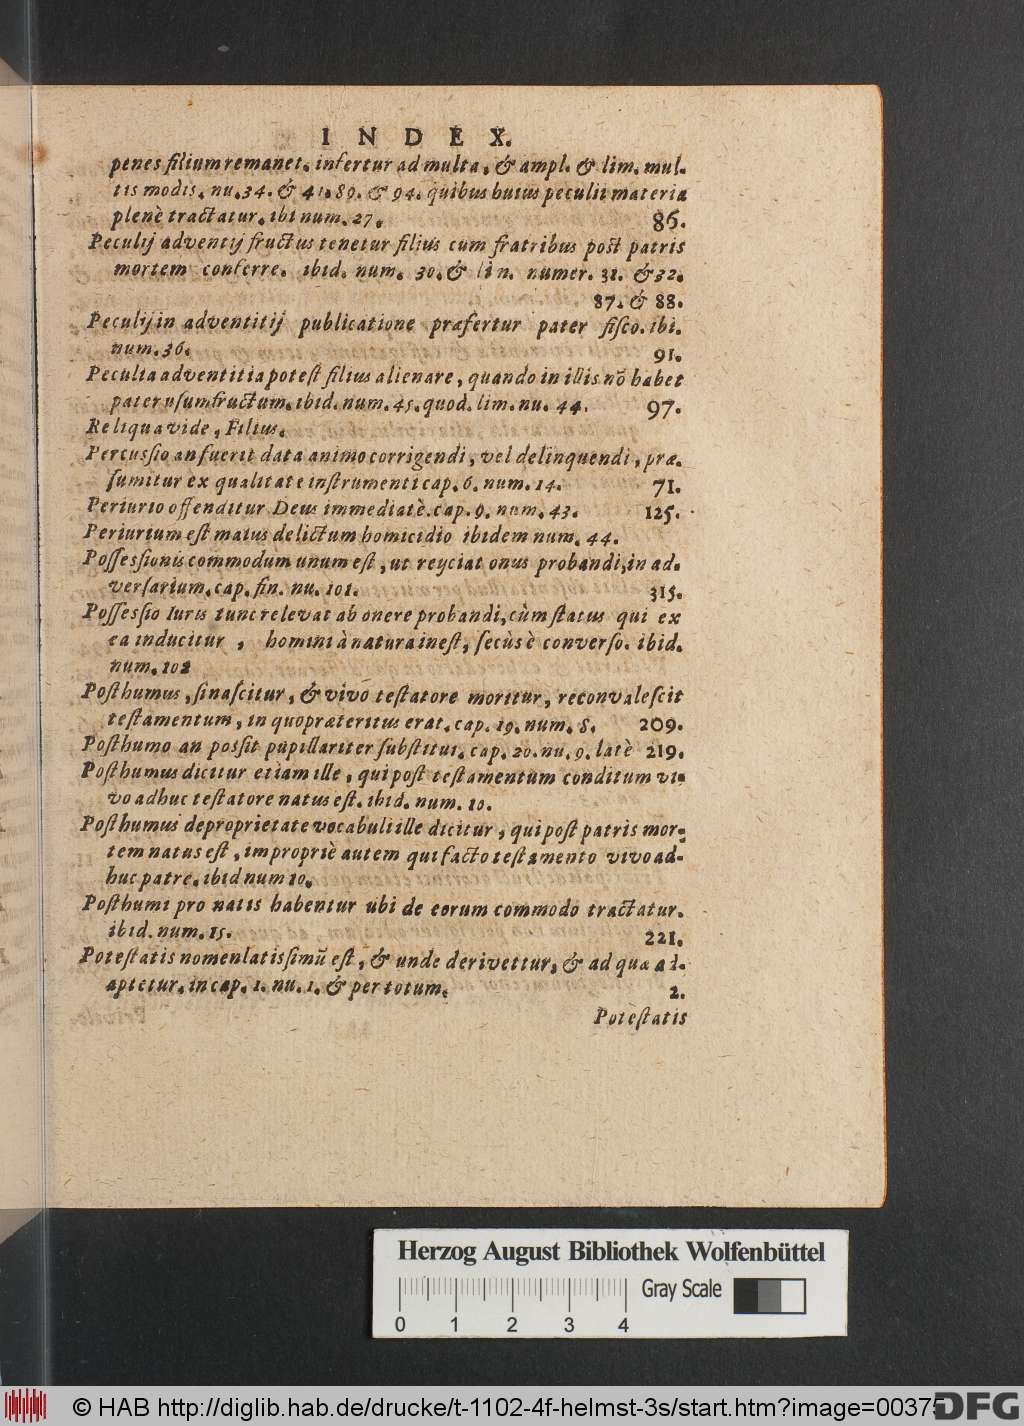 INDEX.
penes filium remanet. infertur ad multa, & ampl. & lim. mul-
tis modis. nu. 34. & 41. 89. & 94. quibus huius peculii materia
plenè tractatur. ibi num. 27. 86.
Peculij adventij fructus tenetur filius cum fratribus post patris
mortem conferre. ibid. num. 30. & lin. numer. 31. & 32.
87. & 88.
Peculij in adventitij publicatione præfertur pater fisco. ibi.
num. 36. 91.
Peculia adventitia potest filius alienare, quando in illis nõ habet
pater usumfructum. ibid. num. 45. quod. lim. nu. 44. 97.
Reliqua vide, Filius.
Percussio an fuerit data animo corrigendi, vel delinquendi, præ-
sumitur ex qualitate instrumenti cap. 6. num. 14. 71.
Periurio offenditur Deus immediatè. cap. 9. num. 43. 125.
Periurium est maius delictum homicidio ibidem num. 44.
Possessionis commodum unum est, ut reyciat onus probandi, in ad-
versarium. cap. fin. nu. 101. 315.
Possessio Iuris tunc relevat ab onere probandi, cùm status qui ex
ea inducitur, homini à natura inest, secùs è converso. ibid.
num. 102
Posthumus, si nascitur, & vivo testatore moritur, reconvalescit
testamentum, in quo præteritus erat. cap. 19. num. 8. 209.
Posthumo an possit pupillariter substitui. cap. 20. nu. 9. latè 219.
Posthumus dicitur etiam ille, qui post testamentum conditum vi-
vo adhuc testatore natus est. ibid. num. 10.
Posthumus de proprietate vocabuli ille dicitur, qui post patris mor-
tem natus est, impropriè autem qui facto testamento vivo ad-
huc patre. ibid num 10.
Posthumi pro natis habentur ubi de eorum commodo tractatur.
ibid. num. 15. 221.
Potestatis nomen latissimũ est, & unde derivettur, & ad quæ ad-
aptetur. in cap. 1. nu. 1. & per totum. 2.
Potestatis
Herzog August Bibliothek Wolfenbüttel
Gray Scale
0 1 2 3 4
© HAB http://diglib.hab.de/drucke/t-1102-4f-helmst-3s/start.htm?image=00375
DFG